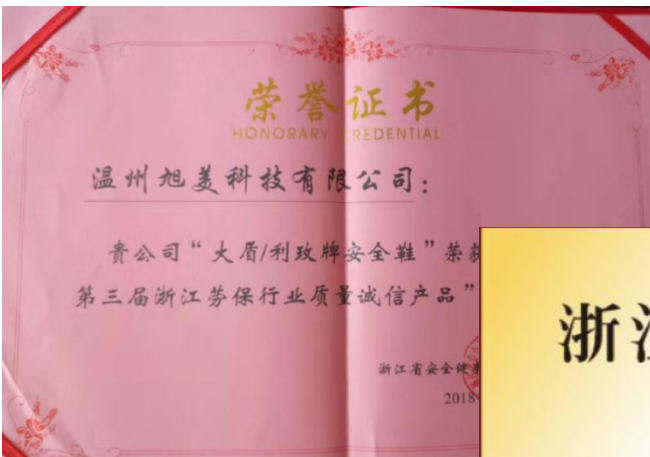 荣誉证书
HONORARY CREDENTIAL
温州旭美科技有限公司：
贵公司“大盾/利玫牌安全鞋”荣获
第三届浙江劳保行业质量诚信产品”
浙江省安全健康
2018
浙江